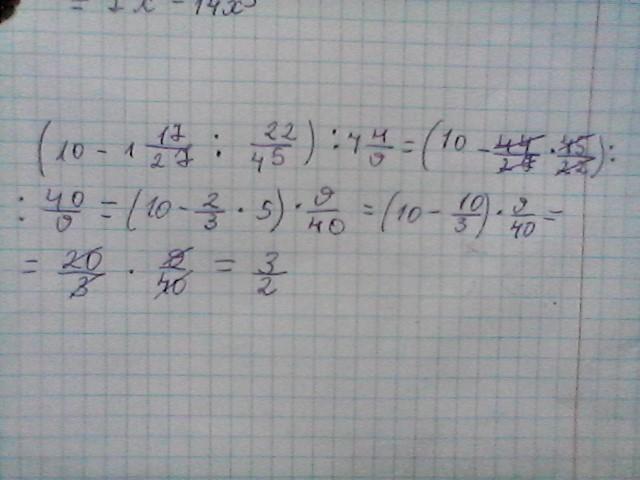 = 7x - 14x³
(10 - 1 17/27 : 22/45) : 4 4/9 = (10 - 44/27 · 45/22) :
: 40/9 = (10 - 2/3 · 5) · 9/40 = (10 - 10/3) · 9/40 =
= 20/3 · 9/40 = 3/2